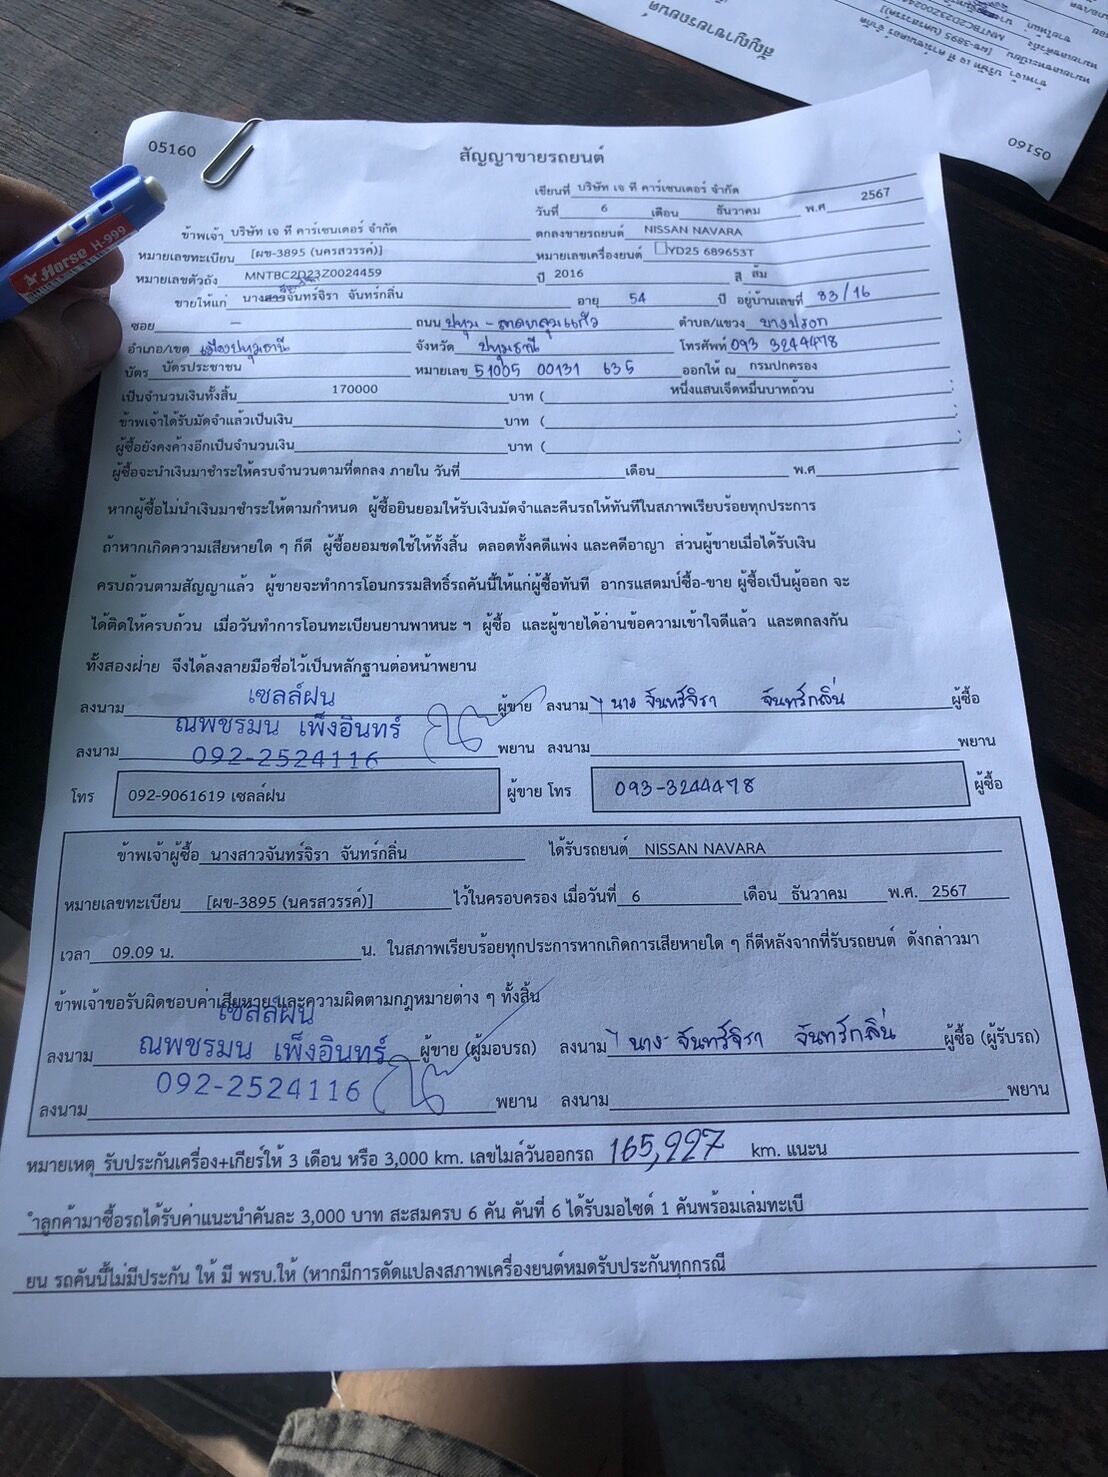 05160
สัญญาขายรถยนต์
เขียนที่ บริษัท เจ ที คาร์เซนเตอร์ จำกัด
วันที่ 6 เดือน ธันวาคม พ.ศ 2567
ข้าพเจ้า บริษัท เจ ที คาร์เซนเตอร์ จำกัด ตกลงขายรถยนต์ NISSAN NAVARA
หมายเลขทะเบียน [ผข-3895 (นครสวรรค์)] หมายเลขเครื่องยนต์ YD25 689653T
หมายเลขตัวถัง MNTBC2D23Z0024459 ปี 2016 สี ส้ม
ขายให้แก่ นางสาวจันทร์จิรา จันทร์กลิ่น อายุ 54 ปี อยู่บ้านเลขที่ 83/16
ซอย - ถนน ปทุม - ลาดหลุมแก้ว ตำบล/แขวง บางปรอก
อำเภอ/เขต เมืองปทุมธานี จังหวัด ปทุมธานี โทรศัพท์ 093 3244478
บัตร บัตรประชาชน หมายเลข 51005 00131 635 ออกให้ ณ กรมปกครอง
เป็นจำนวนเงินทั้งสิ้น 170000 บาท ( หนึ่งแสนเจ็ดหมื่นบาทถ้วน )
ข้าพเจ้าได้รับมัดจำแล้วเป็นเงิน บาท ( )
ผู้ซื้อยังคงค้างอีกเป็นจำนวนเงิน บาท ( )
ผู้ซื้อจะนำเงินมาชำระให้ครบจำนวนตามที่ตกลง ภายใน วันที่ เดือน พ.ศ
หากผู้ซื้อไม่นำเงินมาชำระให้ตามกำหนด ผู้ซื้อยินยอมให้รับเงินมัดจำและคืนรถให้ทันทีในสภาพเรียบร้อยทุกประการ
ถ้าหากเกิดความเสียหายใด ๆ ก็ดี ผู้ซื้อยอมชดใช้ให้ทั้งสิ้น ตลอดทั้งคดีแพ่ง และคดีอาญา ส่วนผู้ขายเมื่อได้รับเงิน
ครบถ้วนตามสัญญาแล้ว ผู้ขายจะทำการโอนกรรมสิทธิ์รถคันนี้ให้แก่ผู้ซื้อทันที อากรแสตมป์ซื้อ-ขาย ผู้ซื้อเป็นผู้ออก จะ
ได้ติดให้ครบถ้วน เมื่อวันทำการโอนทะเบียนยานพาหนะ ฯ ผู้ซื้อ และผู้ขายได้อ่านข้อความเข้าใจดีแล้ว และตกลงกัน
ทั้งสองฝ่าย จึงได้ลงลายมือชื่อไว้เป็นหลักฐานต่อหน้าพยาน
เซลล์ฝน
ลงนาม ณพชรมน เพ็งอินทร์ ผู้ขาย ลงนาม นาง จันทร์จิรา จันทร์กลิ่น ผู้ซื้อ
ลงนาม 092-2524116 พยาน ลงนาม พยาน
โทร 092-9061619 เซลล์ฝน ผู้ขาย โทร 093-3244478 ผู้ซื้อ
ข้าพเจ้าผู้ซื้อ นางสาวจันทร์จิรา จันทร์กลิ่น ได้รับรถยนต์ NISSAN NAVARA
หมายเลขทะเบียน [ผข-3895 (นครสวรรค์)] ไว้ในครอบครอง เมื่อวันที่ 6 เดือน ธันวาคม พ.ศ. 2567
เวลา 09.09 น. น. ในสภาพเรียบร้อยทุกประการหากเกิดการเสียหายใด ๆ ก็ดีหลังจากที่รับรถยนต์ ดังกล่าวมา
ข้าพเจ้าขอรับผิดชอบค่าเสียหาย และความผิดตามกฎหมายต่าง ๆ ทั้งสิ้น
เซลล์ฝน
ลงนาม ณพชรมน เพ็งอินทร์ ผู้ขาย (ผู้มอบรถ) ลงนาม นาง จันทร์จิรา จันทร์กลิ่น ผู้ซื้อ (ผู้รับรถ)
092-2524116
ลงนาม พยาน ลงนาม พยาน
หมายเหตุ รับประกันเครื่อง+เกียร์ให้ 3 เดือน หรือ 3,000 km. เลขไมล์วันออกรถ 165,227 km. แนะน
ำลูกค้ามาซื้อรถได้รับค่าแนะนำคันละ 3,000 บาท สะสมครบ 6 คัน คันที่ 6 ได้รับมอไซด์ 1 คันพร้อมเล่มทะเบี
ยน รถคันนี้ไม่มีประกัน ให้ มี พรบ.ให้ (หากมีการดัดแปลงสภาพเครื่องยนต์หมดรับประกันทุกกรณี
Horse H-999
05160
สัญญาขายรถยนต์